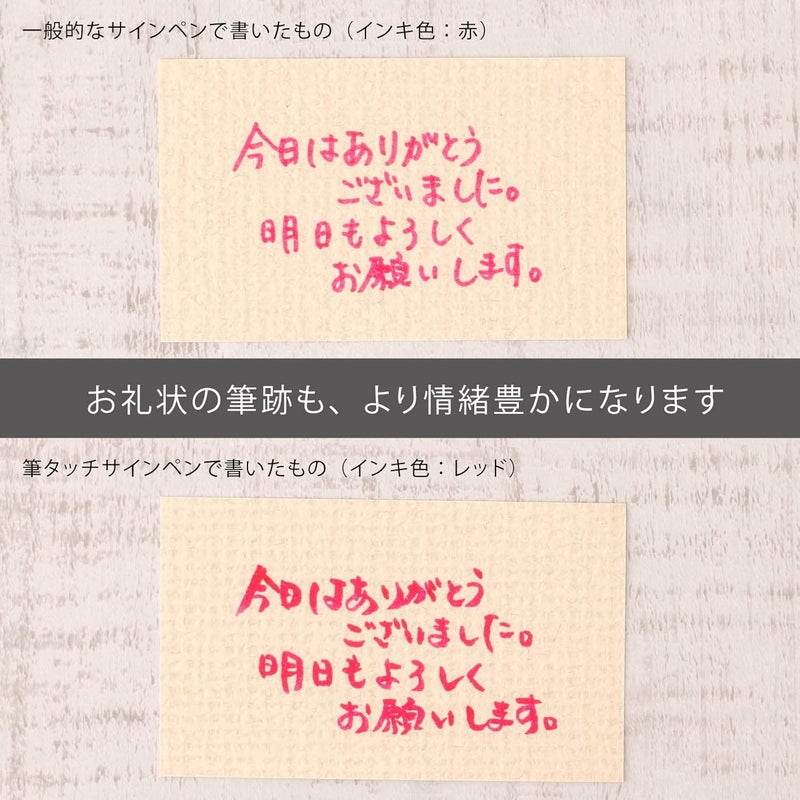 一般的なサインペンで書いたもの（インキ色：赤）
今日はありがとう
ございました。
明日もよろしく
お願いします。
お礼状の筆跡も、より情緒豊かになります
筆タッチサインペンで書いたもの（インキ色：レッド）
今日はありがとう
ございました。
明日もよろしく
お願いします。